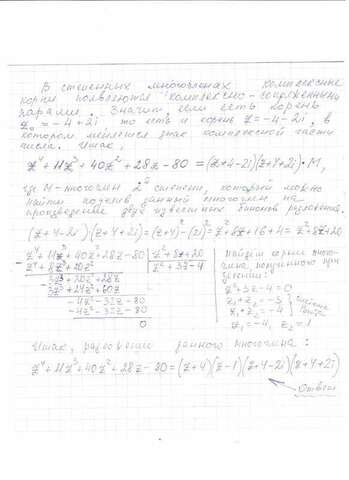 В степенных многочленах комплексные
корни появляются комплексно-сопряженными
парами. Значит, если есть корень
z₀ = -4+2i то есть и корень z = -4-2i, в
котором меняется знак комплексной части
числа. Итак,
z⁴ + 11z³ + 40z² + 28z - 80 = (z+4-2i)(z+4+2i)·M,
где M - многочлен 2ой степени, который можно
найти поделив данный многочлен на
произведение двух известных биномов разложения.
(z+4-2i)·(z+4+2i) = (z+4)² - (2i)² = z²+8z+16+4 = z²+8z+20
z⁴ + 11z³ + 40z² + 28z - 80 | z² + 8z + 20
z⁴ + 8z³ + 20z² | z² + 3z - 4
3z³ + 20z² + 28z
3z³ + 24z² + 60z
-4z² - 32z - 80
-4z² - 32z - 80
0
Найдем корни много-
члена, полученного при
делении:
z² + 3z - 4 = 0
z₁ + z₂ = -3
z₁ · z₂ = -4
система
Виета
z₁ = -4, z₂ = 1
Итак, разложение данного многочлена:
z⁴ + 11z³ + 40z² + 28z - 80 = (z+4)(z-1)(z+4-2i)(z+4+2i)
Ответ